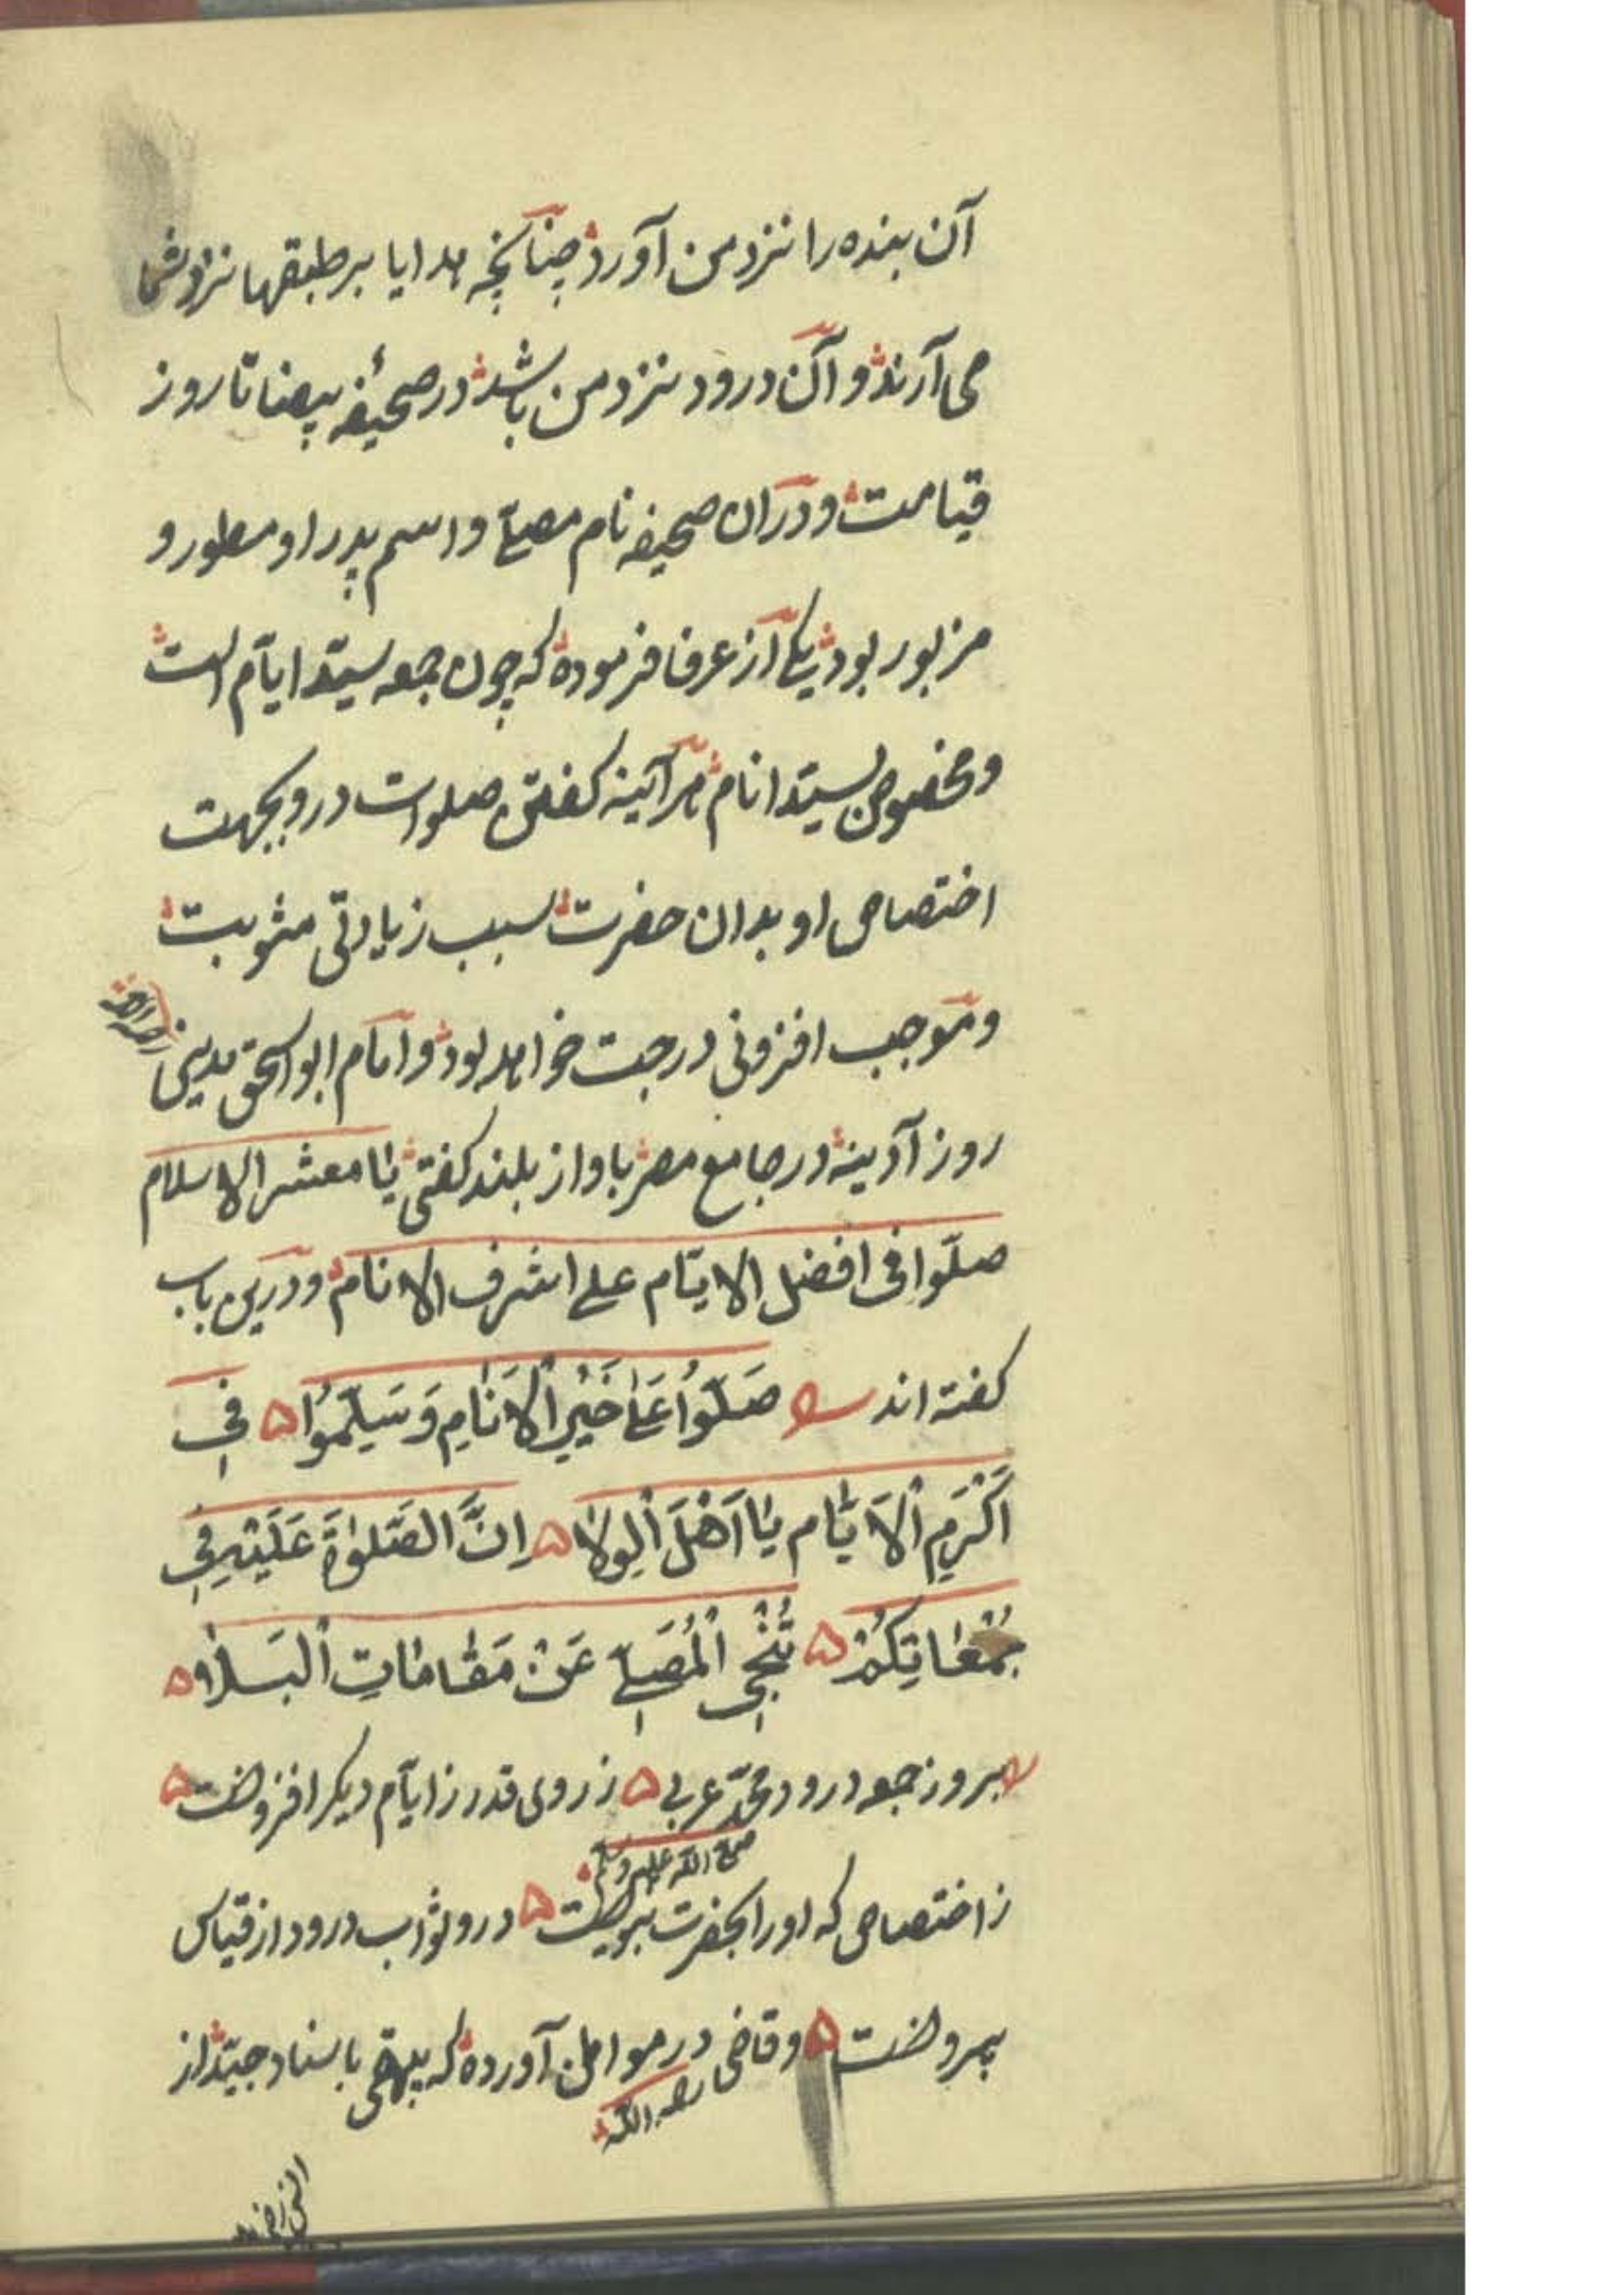 آن بنده را نزد من آورد چنانچه هدایا بر طبقها نزد شما
می آرند و آن درود نزد من باشد در صحیفه بیضا تا روز
قیامت و در ان صحیفه نام مصلّے و اسم پدر او مسطور و
مزبور بود یکے از عرفا فرموده که چون جمعه سیّد ایّام است
و مخصوص بسیّد انام هر آئینه کفتن صلوات درو بجهت
اختصاص او بدان حضرت سبب زیادتی مثوبت
و موجب افزونی درجت خواهد بود و امام ابو اسحق مدینی رحمه الله
روز آدینه در جامع مصر باواز بلند کفتی یا معشر الاسلام
صلّوا فی افضل الایّام علے اشرف الانام و درین باب
کفته اند صَلُّوا عَلٰے خَیْرِ الْاَنَامِ وَسَلِّمُوْا فِی
اَکْرَمِ الْاَیَّام یَا اَهْلَ الْوِلَا اِنَّ الصَّلٰوةَ عَلَیْهِ فِی
جُمُعَاتِکُمْ تُنْجِی الْمُصَلِّے عَنْ مَقَامَاتِ الْبَلَا
بروز جمعه درود محمّد عربی ز روی قدر ز ایّام دیکر افزونست
صلے الله علیه وسلم
ز اختصاص که او را بحضرت نبویست درو ثواب درود از قیاس
بیرونست و قاضی در مواطن آورده که بیهقی باسناد جیّد از
رحمه الله
انس رضی